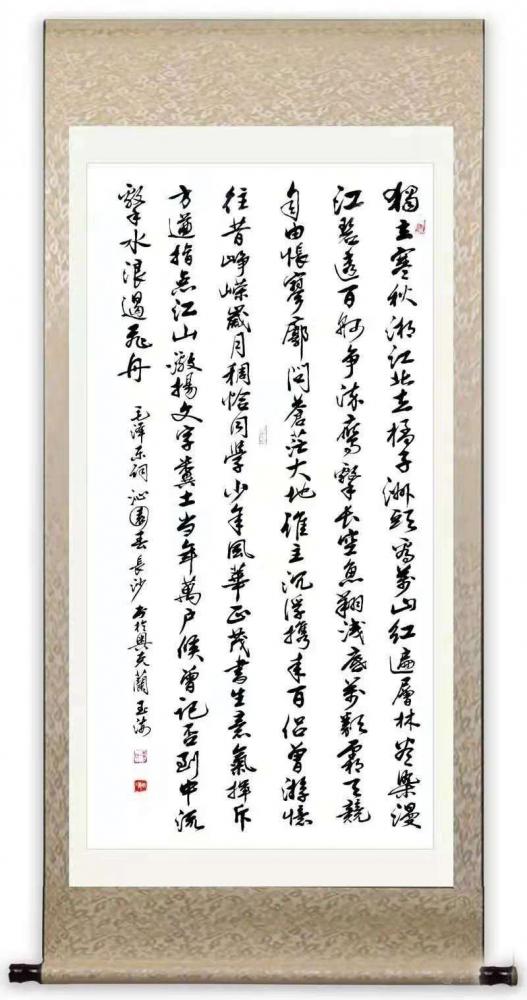 獨立寒秋湘江北去橘子洲頭看萬山紅遍層林尽染漫
江碧透百舸争流鹰擊长空魚翔浅底萬類霜天競
自由悵寥廓問蒼茫大地谁主沉浮携来百侣曾游憶
往昔崢嶸歲月稠恰同學少年風華正茂書生意氣揮斥
方遒指点江山激揚文字糞土当年萬户侯曾記否到中流
擊水浪遏飛舟
毛泽东詞沁園春長沙书於奥克蘭玉